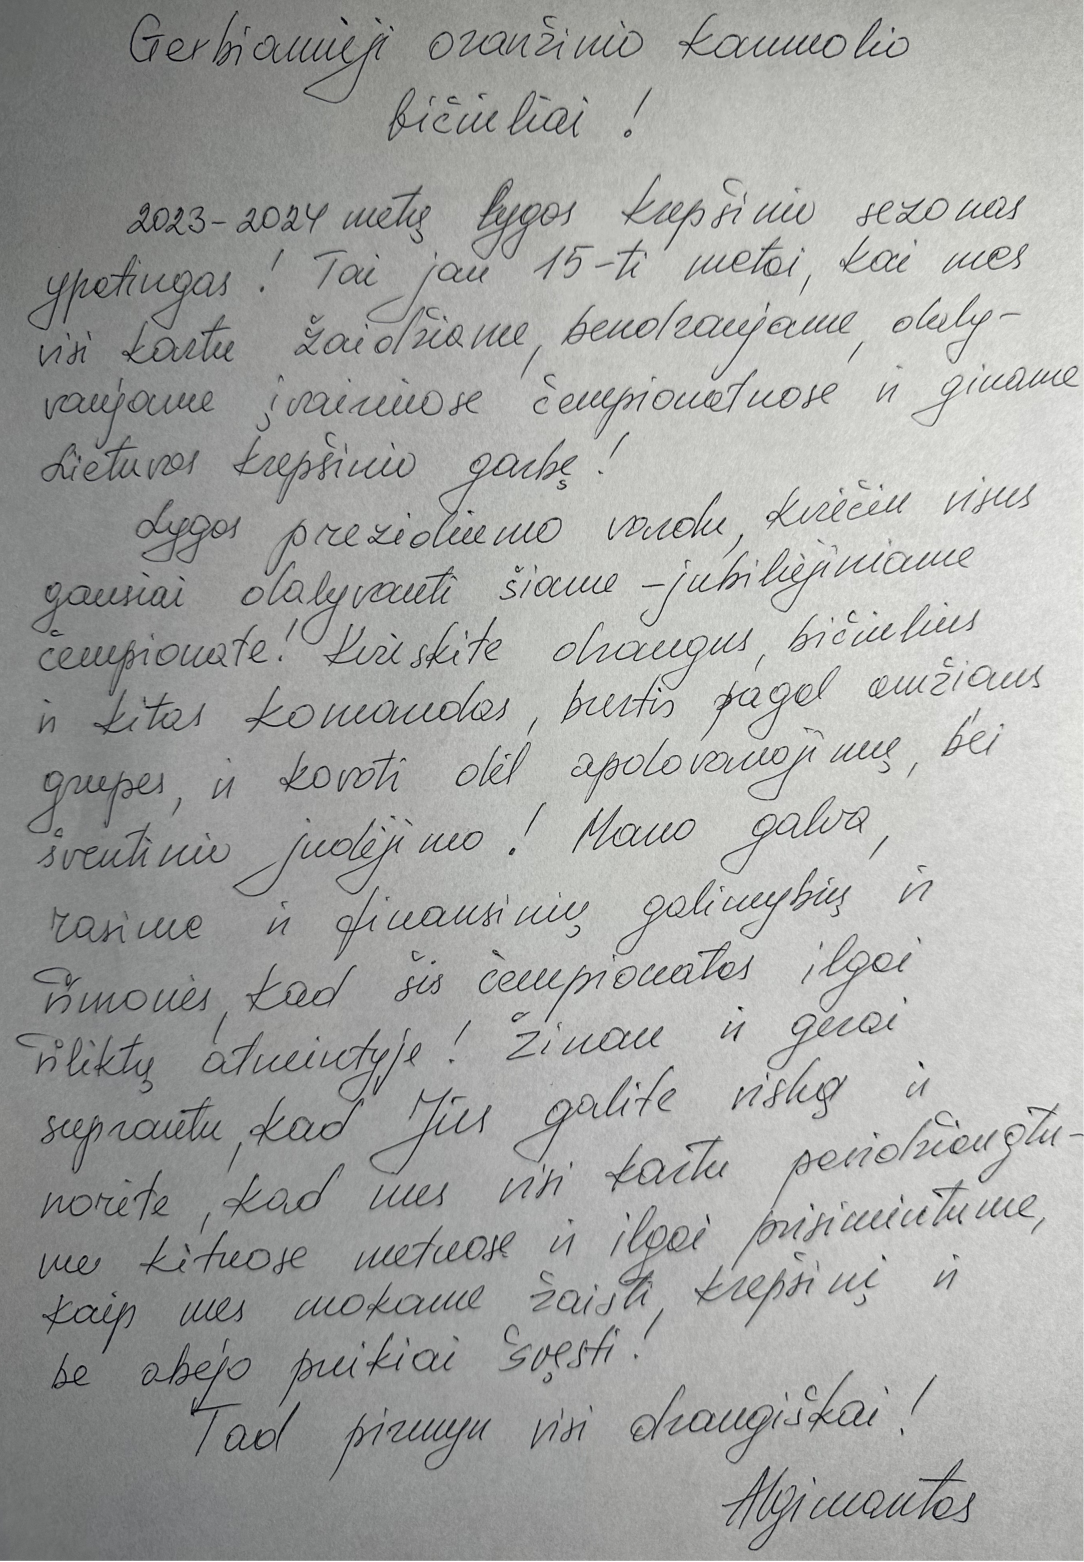 Gerbiamieji oranžinio kamuolio
bičiuliai !
2023-2024 metų Lygos krepšinio sezonas
ypatingas ! Tai jau 15-ti metai, kai mes
visi kartu žaidžiame, bendraujame, daly-
vaujame įvairiuose čempionatuose ir giname
Lietuvos krepšinio garbę !
Lygos prezidiumo vardu, kviečiu visus
gausiai dalyvauti šiame - jubiliejiniame
čempionate! Kvieskite draugus, bičiulius
ir kitas komandas, burtis pagal amžiaus
grupes, ir kovoti dėl apdovanojimų, bei
šventinio judėjimo ! Mano galva,
rasime ir finansinių galimybių ir
žmonės, kad šis čempionatas ilgai
išliktų atmintyje ! Žinau ir gerai
suprantu, kad Jūs galite viską ir
norite, kad mes visi kartu pasidžiaugtu-
me kituose metuose ir ilgai prisimintume,
kaip mes mokame žaisti, krepšinį ir
be abejo puikiai švęsti !
Tad pirmyn visi draugiškai !
Algimantas